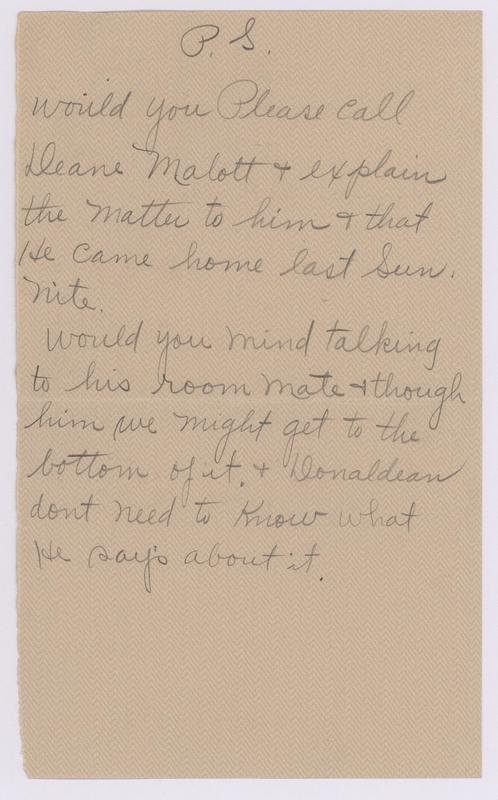 P. S.
would you Please call
Deane Malott & explain
the matter to him & that
He came home last Sun.
nite.
would you mind talking
to his room mate & though
him we might get to the
bottom of it. & Donaldean
dont need to Know what
He say's about it.